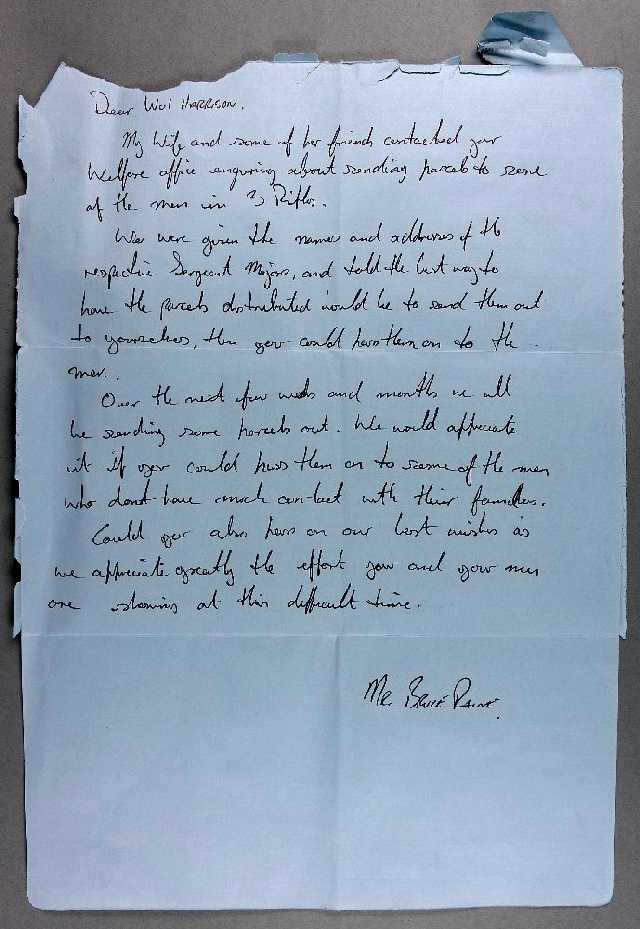 Dear WO1 HARRISON.
My Wife and some of her friends contacted your
Welfare office enquiring about sending parcels to some
of the men in 3 Rifles.
We were given the names and addresses of the
respective Sergeant Majors, and told the best way to
have the parcels distributed would be to send them out
to yourselves, then you could pass them on to the
men.
Over the next few weeks and months we will
be sending some parcels out. We would appreciate
it if you could pass them on to some of the men
who dont have much contact with their families.
Could you also pass on our best wishes as
we appreciate greatly the effort you and your men
are showing at this difficult time.
Mr. Bruce